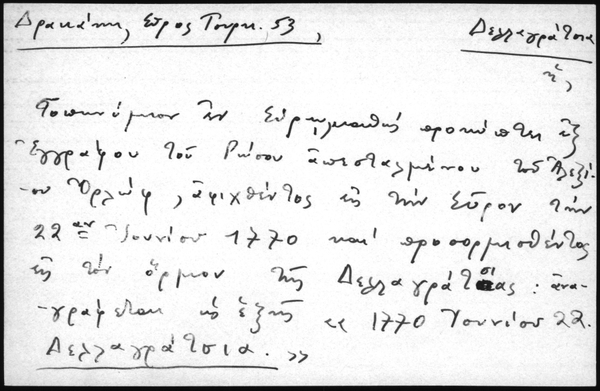 Δρακάκη, Σῦρος Τουρκ. 53, Δελλαγράτσια
ἡ,
Τοπωνύμιον ἐν Σύρῳ, καθὼς προκύπτει ἐξ
ἐγγράφου τοῦ Ρώσου ἀπεσταλμένου τοῦ Ἀλεξί-
ου Ὀρλώφ, ἀφιχθέντος εἰς τὴν Σῦρον τὴν
22αν Ἰουνίου 1770 καὶ προσορμισθέντος
εἰς τὸν ὅρμον τῆς Δελλαγράτσιας: ἀνα-
-γράφεται ὡς ἑξῆς « 1770 Ἰουνίου 22.
Δελλαγράτσια. »